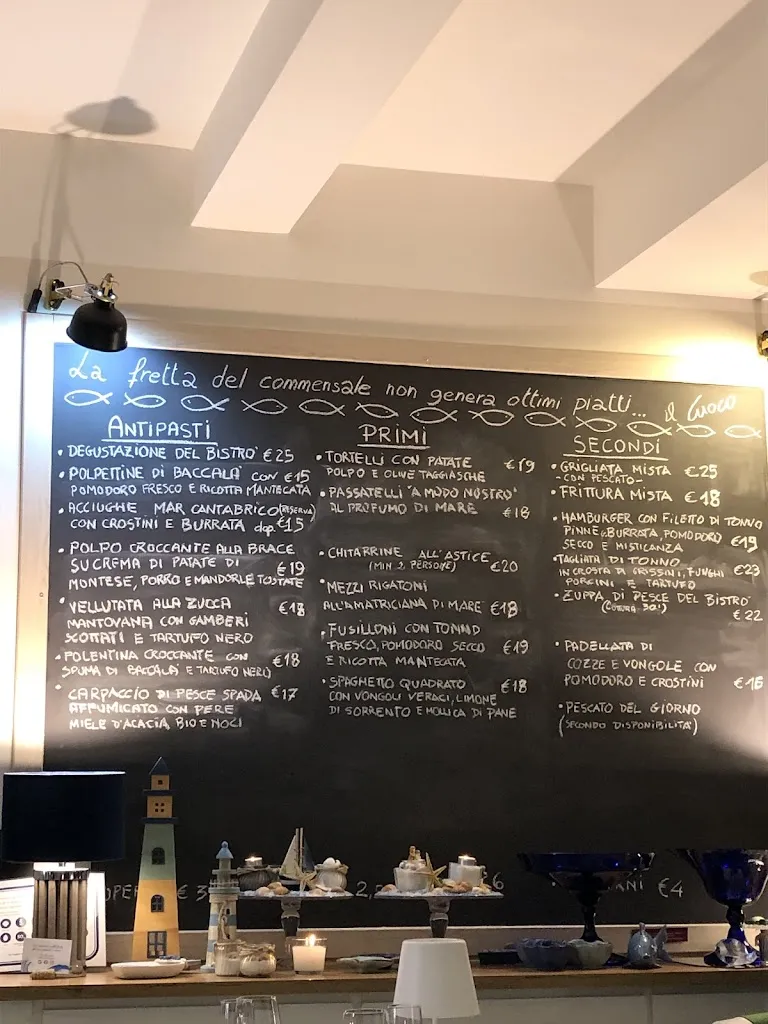 La fretta del commensale non genera ottimi piatti... il Cuoco
ANTIPASTI
• DEGUSTAZIONE DEL BISTRO' €25
• POLPETTINE DI BACCALA' CON €15
POMODORO FRESCO E RICOTTA MANTECATA
• ACCIUGHE MAR CANTABRICO (RISERVA)
CON CROSTINI E BURRATA dop. €15
• POLPO CROCCANTE ALLA BRACE
SU CREMA DI PATATE DI €19
MONTESE, PORRO E MANDORLE TOSTATE
• VELLUTATA ALLA ZUCCA €18
MANTOVANA CON GAMBERI
SCOTTATI E TARTUFO NERO
• POLENTINA CROCCANTE CON €18
SPUMA DI BACCALA' E TARTUFO NERO
• CARPACCIO DI PESCE SPADA €17
AFFUMICATO CON PERE
MIELE D'ACACIA BIO E NOCI
PRIMI
• TORTELLI CON PATATE €19
POLPO E OLIVE TAGGIASCHE
• PASSATELLI "A MODO NOSTRO"
AL PROFUMO DI MARE €18
• CHITARRINE ALL'ASTICE
(MIN 2 PERSONE) €20
• MEZZI RIGATONI
ALL'AMATRICIANA DI MARE €18
• FUSILLONI CON TONNO
FRESCO, POMODORO SECCO €19
E RICOTTA MANTECATA
• SPAGHETTO QUADRATO €18
CON VONGOLE VERACI, LIMONE
DI SORRENTO E MOLLICA DI PANE
SECONDI
• GRIGLIATA MISTA €25
- CON PESCATO -
• FRITTURA MISTA €18
• HAMBURGER CON FILETTO DI TONNO
PINNE, BURRATA, POMODORO €19
SECCO E MISTICANZA
• TAGLIATA DI TONNO €23
IN CROSTA DI GRISSINI, FUNGHI
PORCINI E TARTUFO
• ZUPPA DI PESCE DEL BISTRO'
(COTTURA 30') €22
• PADELLATA DI
COZZE E VONGOLE CON
POMODORO E CROSTINI €16
• PESCATO DEL GIORNO
(SECONDO DISPONIBILITA')
€4